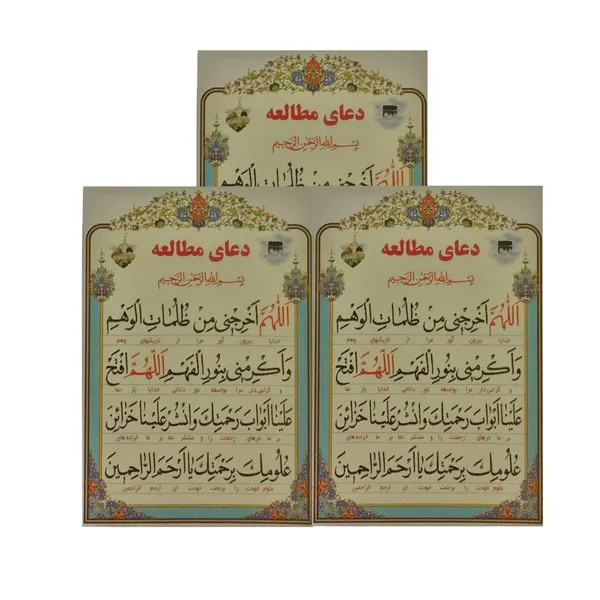 دعای مطالعه
بسم الله الرحمن الرحیم
اَللّهُمَّ اَخرِجنی مِن ظُلُماتِ الوَهمِ
دعای مطالعه
بسم الله الرحمن الرحیم
اَللّهُمَّ اَخرِجنی مِن ظُلُماتِ الوَهمِ
خدایا بیرون آور مرا از تاریکیهای وهم
وَاَکرِمنی بِنورِ الفَهمِ اَللّهُمَّ افتَح
و گرامی دار مرا بواسطه نور دانائی خدایا باز نما
عَلَینا اَبوابَ رَحمَتِکَ وَانشُر عَلَینا خَزائِنَ
بر ما درهای رحمتت را و منتشر نما بر ما خزانه های
عُلومِکَ بِرَحمَتِکَ یا اَرحَمَ الرّاحِمینَ
علوم خودت را برحمت خودت ای ارحم الراحمین
دعای مطالعه
بسم الله الرحمن الرحیم
اَللّهُمَّ اَخرِجنی مِن ظُلُماتِ الوَهمِ
خدایا بیرون آور مرا از تاریکیهای وهم
وَاَکرِمنی بِنورِ الفَهمِ اَللّهُمَّ افتَح
و گرامی دار مرا بواسطه نور دانائی خدایا باز نما
عَلَینا اَبوابَ رَحمَتِکَ وَانشُر عَلَینا خَزائِنَ
بر ما درهای رحمتت را و منتشر نما بر ما خزانه های
عُلومِکَ بِرَحمَتِکَ یا اَرحَمَ الرّاحِمینَ
علوم خودت را برحمت خودت ای ارحم الراحمین